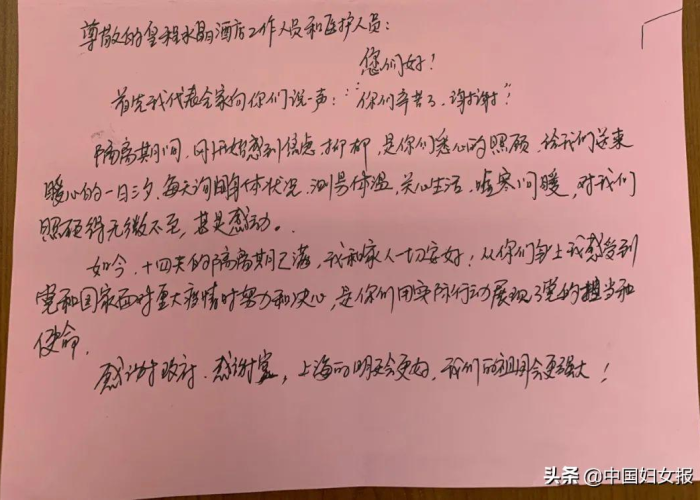 尊敬的皇程水晶酒店工作人员和医护人员：
您们好！
首先我代表全家向你们说一声：“你们辛苦了，谢谢”！
隔离期间，刚开始感到焦虑抑郁，是你们悉心的照顾，给我们送来
暖心的一日三夕，每天询问身体状况，测号体温，关心生活，嘘寒问暖，对我们
照顾得无微不至，甚是感动。
如今，十四天的隔离期已满，我和家人一切安好！从你们身上我感受到
党和国家面对重大疫情时努力和决心，是你们用实际行动展现了党的担当和
使命。
感谢政府、感谢党，上海的明天会更好，我们的祖国会更强大！
头条 @中国妇女报